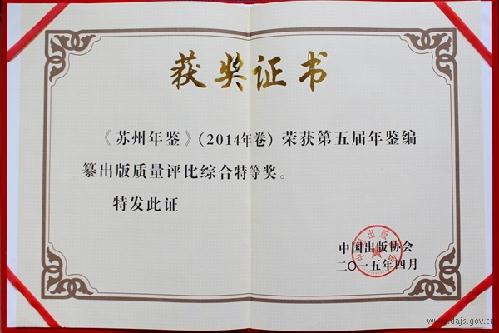 获奖证书
《苏州年鉴》(2014年卷)荣获第五届年鉴编
纂出版质量评比综合特等奖。
特发此证
中国出版协会
二〇一五年四月